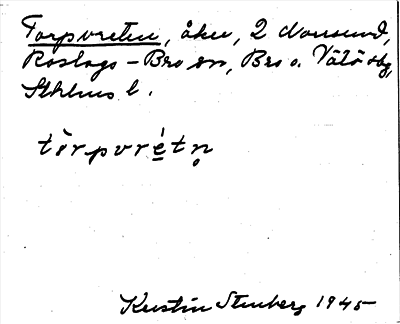 Torpvreten, åker, 2 Norrsund,
Roslags-Bro sn, Bro o. Vätö skg,
Sthlms l.
tòrpvrétn̥
Kerstin Stenberg 1945